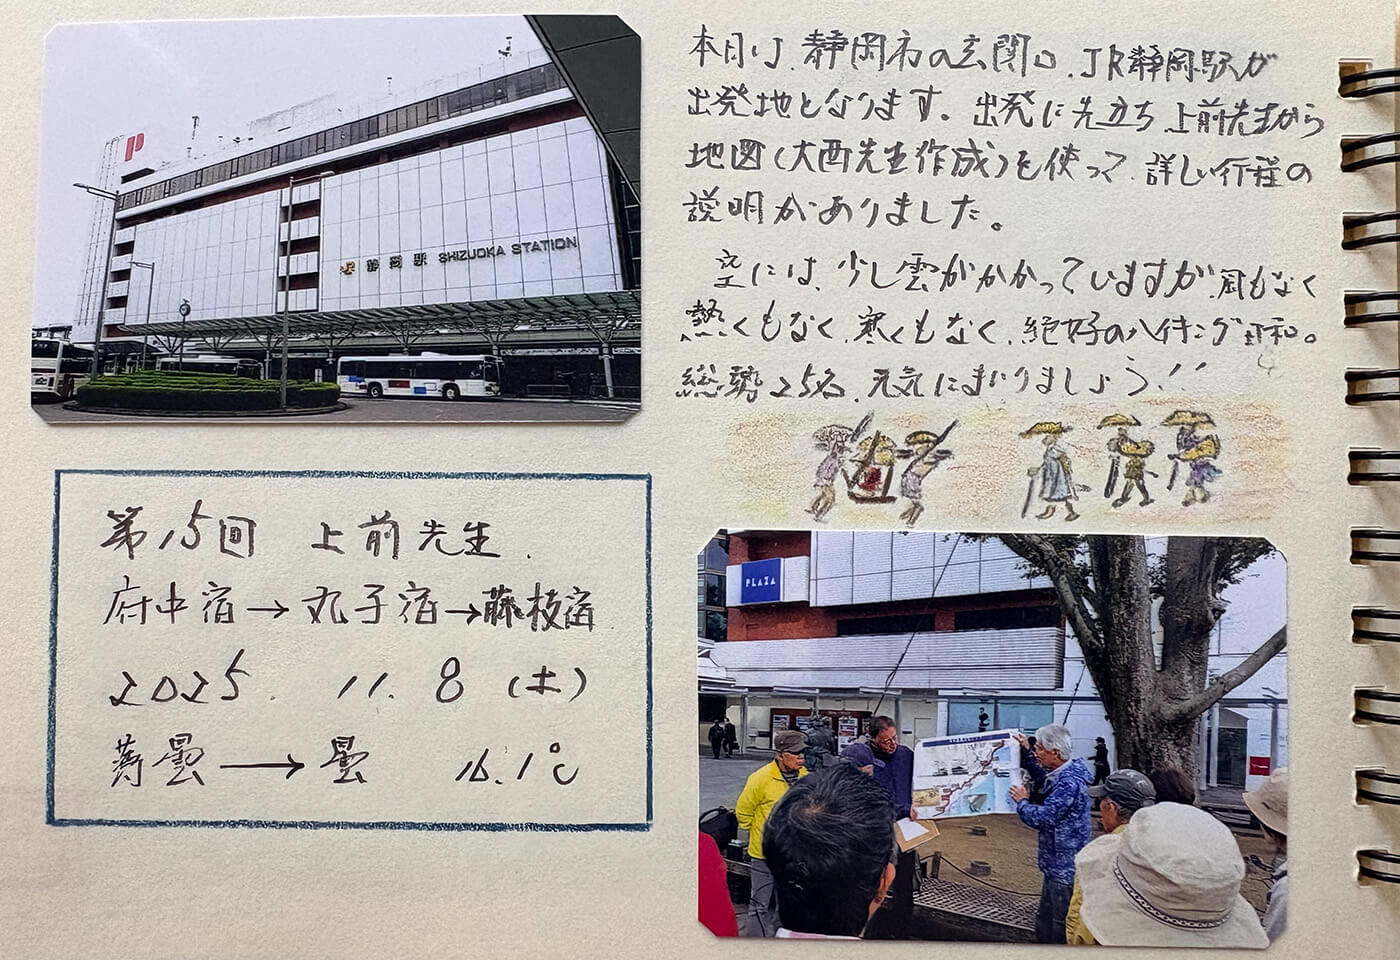 本日は、静岡市の玄関口、JR静岡駅が
出発地となります。出発に先立ち上前先生から
地図(大西先生作成)を使って、詳しい行程の
説明がありました。
空には、少し雲がかかっていますが、風もなく
熱くもなく、寒くもなく、絶好のハイキング日和。
総勢25名、元気にまいりましょう!!
JR 静岡駅 SHIZUOKA STATION
P
第15回 上前先生.
府中宿→丸子宿→藤枝宿
2025. 11. 8 (土)
薄曇→曇 16.1℃
PLAZA